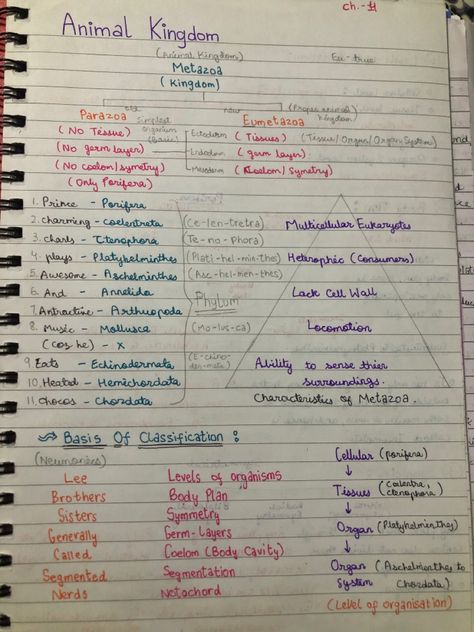 ch.-11
Animal Kingdom
(Animal Kingdom) Eu - true
Metazoa
(Kingdom)
Parazoa simplest new (Proper animal kingdom)
organism (Basic) Eumetazoa
(No Tissue) Ectoderm (Tissues) (Tissue/Organ/Organ System)
(No germ layer) Endoderm (germ layer)
(No coelom/symetry) Mesoderm (Coelom/Symetry)
(Only Porifera)
1. Prince - Porifera
2. charming - Coelentrata (Ce-len-tretra) Multicellular Eukaryotes
3. charls - Ctenophora (Te-no-phora)
4. plays - Platyhelminthes (Plati-hel-min-thes) Heterophic (Consumers)
5. Awesome - Aschelminthes (Asc-hel-men-thes)
6. And - Annelida Phylum Lack Cell Wall
7. Antractine - Arthuopoda
8. Music - Mollusca (Mo-lus-ca) Locomotion
(cos he) - x
9. Eats - Echinodermata (E-chino-der-mata) Ability to sense thier
10. Heated - Hemichordata surroundings.
11. Chocos - Chordata Characteristics of Metazoa.
Basis Of Classification :
(Neumonics) Cellular (porifera)
Lee Levels of organisms
Brothers Body Plan Tissues (Coelentra, ctenophora)
Sisters Symmetry
Generally Germ-Layers Organ (Platyhelminthes)
Called Coelom (Body Cavity)
Segmented Segmentation Organ (Aschelminthes to
Nerds Notochord System Chordata)
(Level of organisation)